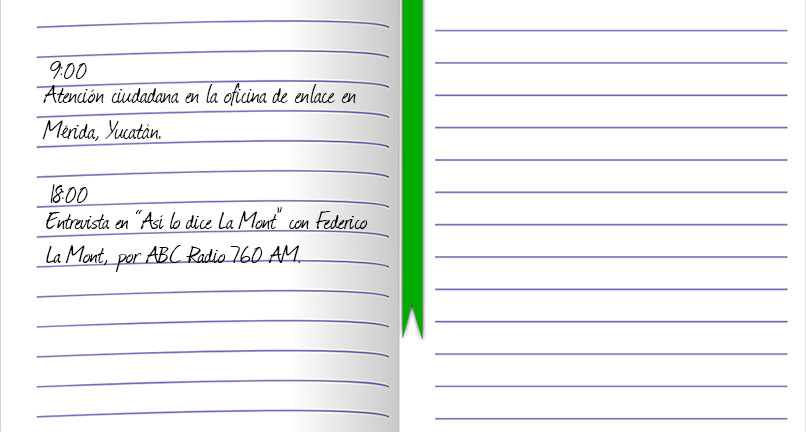 9:00
Atención ciudadana en la oficina de enlace en
Mérida, Yucatán.
18:00
Entrevista en "Así lo dice La Mont" con Federico
La Mont, por ABC Radio 760 AM.